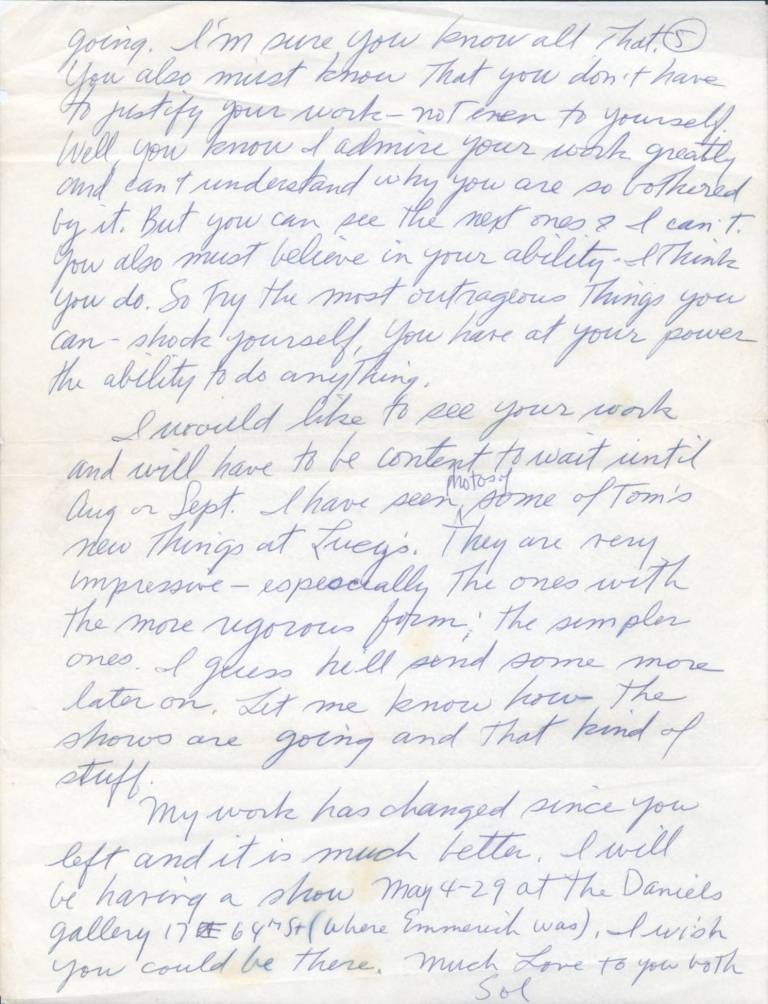 going. I'm sure you know all that. 5
You also must know that you don't have
to justify your work - not even to yourself.
Well, you know I admire your work greatly
and can't understand why you are so bothered
by it. But you can see the next ones & I can't.
You also must believe in your ability - I think
you do. So try the most outrageous things you
can - shock yourself. You have at your power
the ability to do anything.
I would like to see your work
and will have to be content to wait until
Aug or Sept. I have seen photos of some of Tom's
new things at Lucy's. They are very
impressive - especially the ones with
the more rigorous form; the simpler
ones. I guess he'll send some more
later on. Let me know how the
shows are going and that kind of
stuff.
My work has changed since you
left and it is much better. I will
be having a show May 4-29 at the Daniels
gallery 17 E 64th St (where Emmerich was). I wish
you could be there. Much Love to you both
Sol